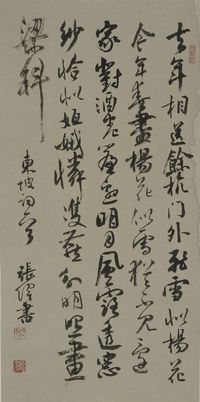 去年相送餘杭门外飛雪似楊花
今年春盡楊花似雪猶不見還
家對酒卷簾邀明月風露透窓
紗恰似姮娥憐雙燕分明照畫
梁斜
東坡詞
張書